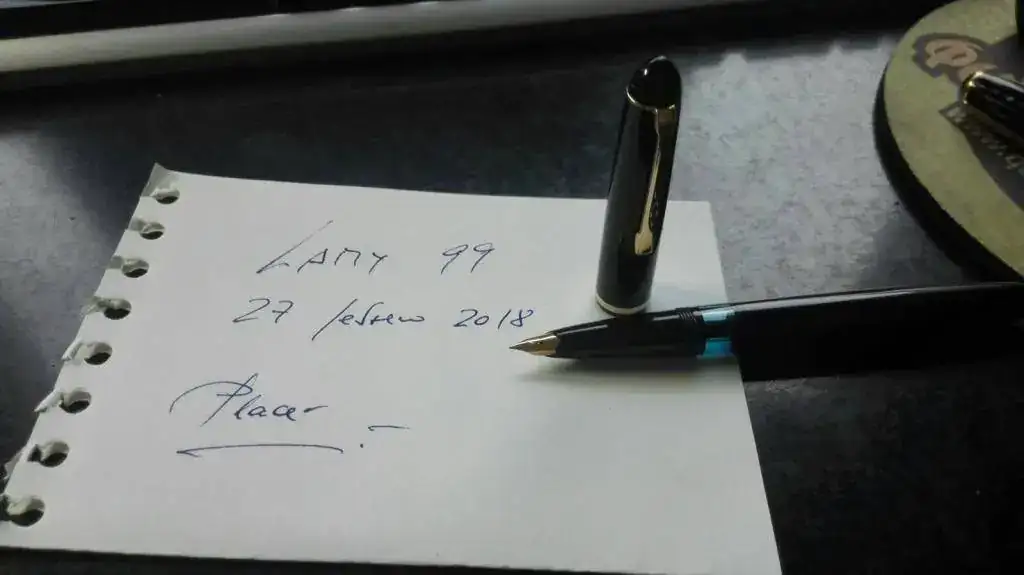 LAMY 99
27 febrero 2018
Placer